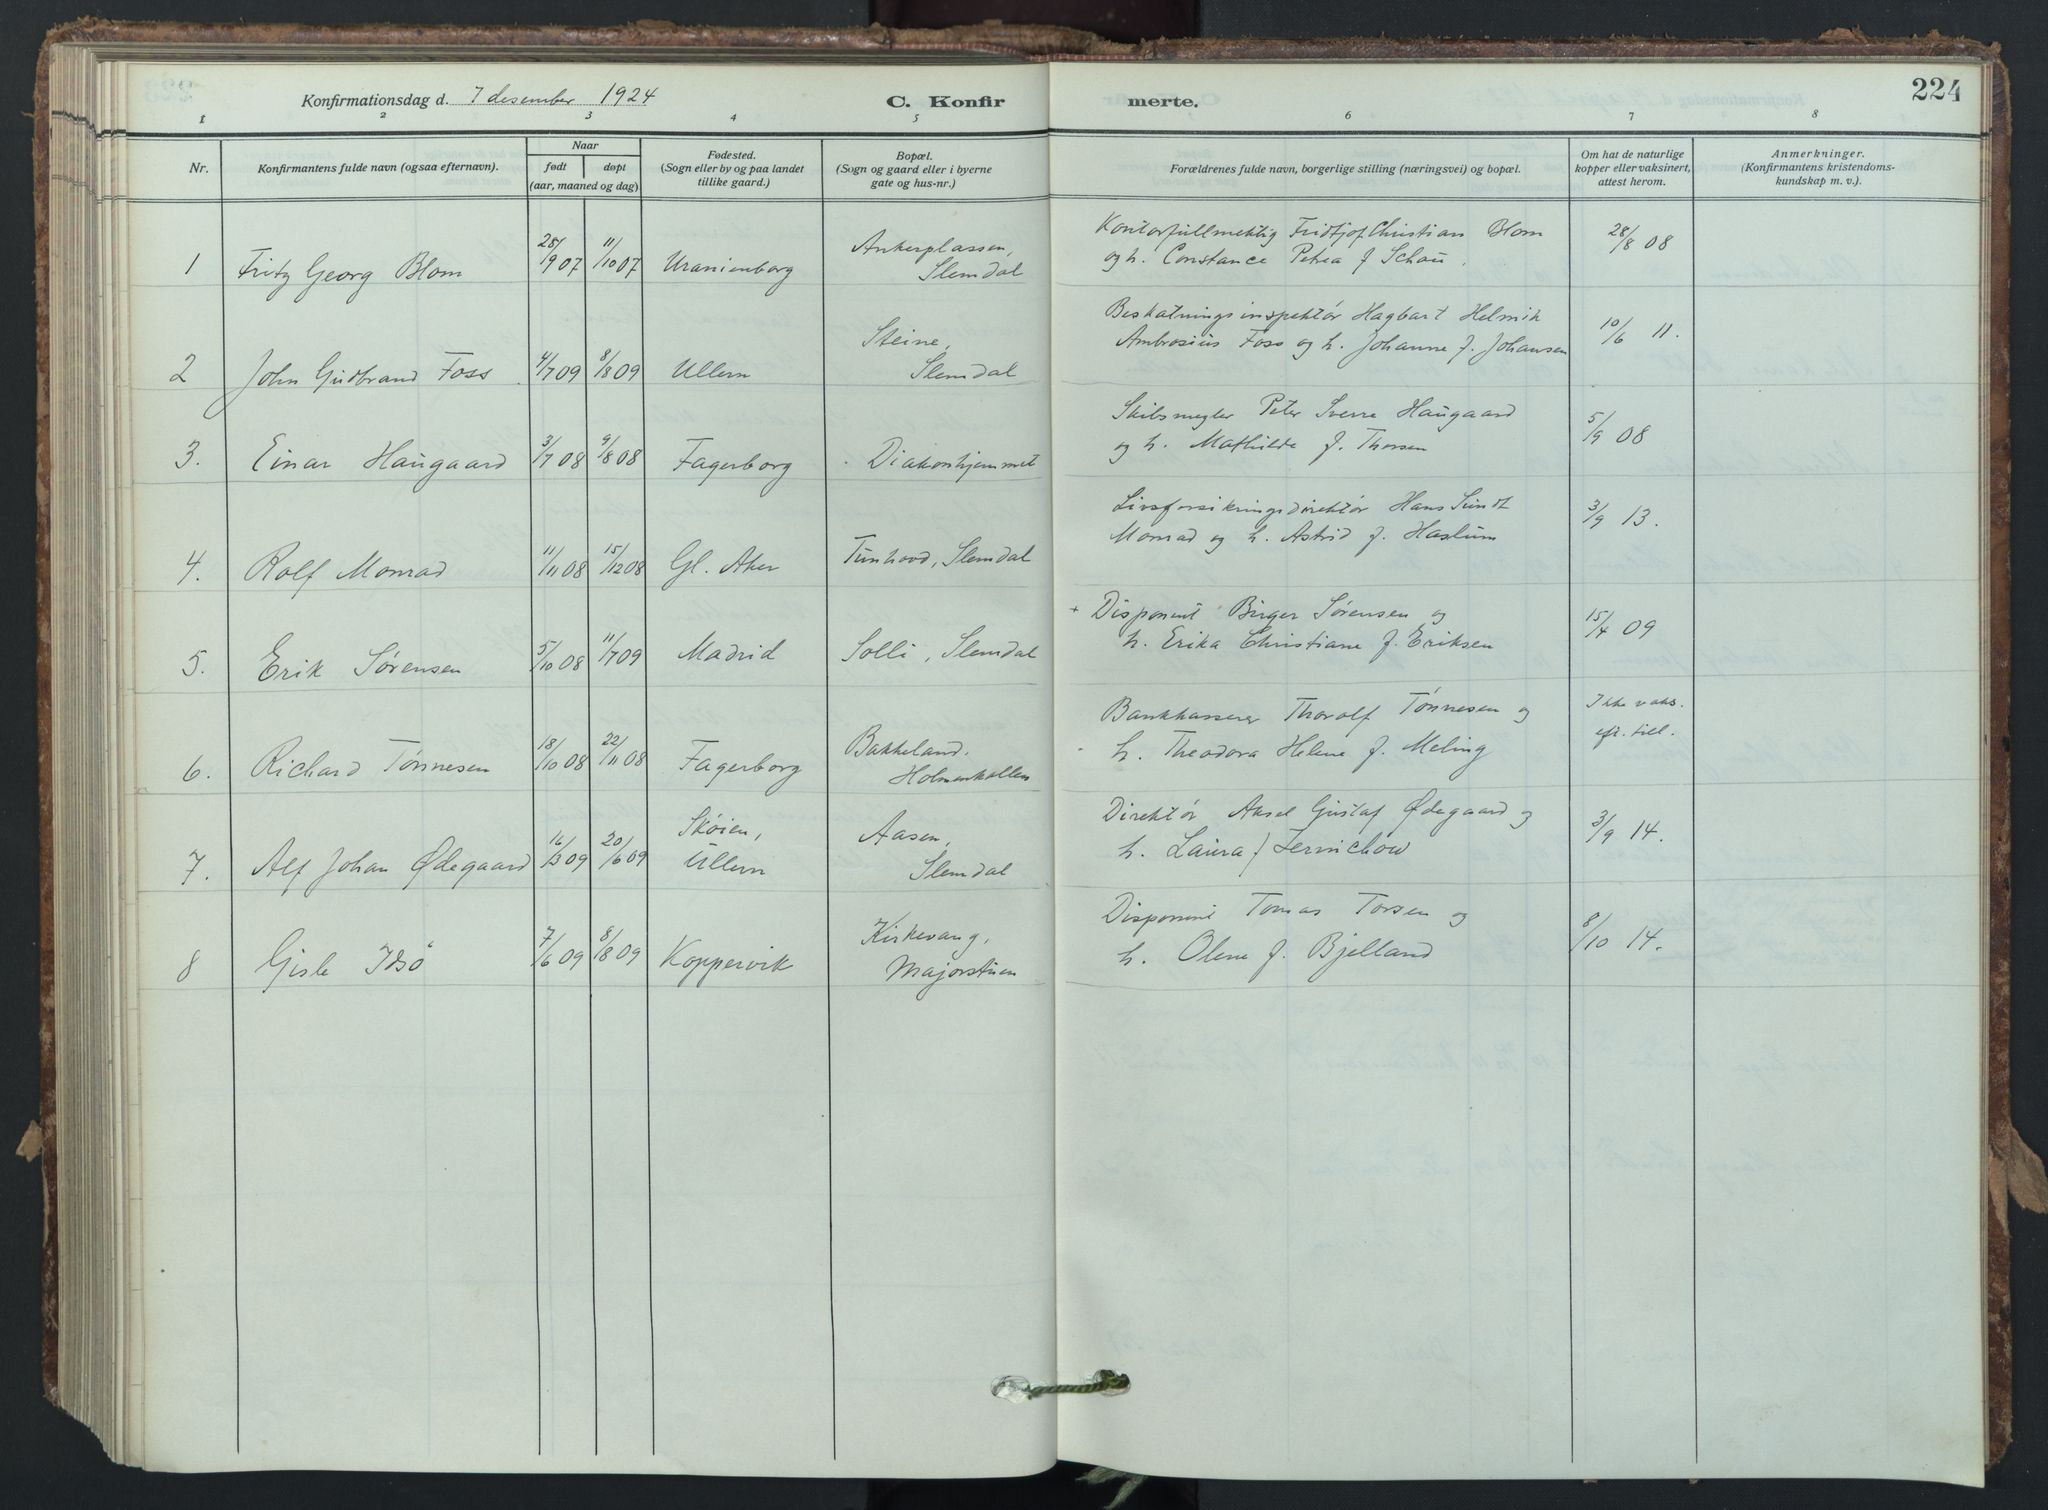 Konfirmationsdag d. 7 desember 1924 C. Konfirmerte. 224
1 2 3 4 5 6 7 8
Nr. Konfirmantens fulde navn (ogsaa efternavn). Naar født døpt (aar, maaned og dag) Fødested. (Sogn eller by og paa landet tillike gaard.) Bopæl. (Sogn og gaard eller i byerne gate og hus-nr.) Forældrenes fulde navn, borgerlige stilling (næringsvei) og bopæl. Om hat de naturlige kopper eller vaksinert, attest herom. Anmerkninger. (Konfirmantens kristendomskundskap m. v.).
1 Fritz Georg Blom 28/9 07 11/10 07 Uranienborg Ankerplassen, Slemdal
Kontorfullmektig Fridtjof Christian Blom 28/8 08
og h. Constance Petrea f Schou.
2 John Gudbrand Foss 4/7 09 8/8 09 Ullern Steine, Slemdal
Beskatningsinspektør Hagbart Helmik 10/6 11.
Ambrosius Foss og h. Johanne f. Johansen
3. Einar Haugaard 3/7 08 9/8 08 Fagerborg Diakonhjemmet
Skibsmegler Peter Sverre Haugaard 5/9 08
og h. Mathilde f. Thorsen
4. Rolf Monrad 11/11 08 15/12 08 Gl. Aker Tunhovd, Slemdal
Livsforsikringsdirektør Hans Sundt 3/9 13.
Monrad og h. Astrid f. Haslum
5. Erik Sørensen 5/10 08 11/7 09 Madrid Solli, Slemdal
+ Disponent Birger Sørensen og 15/4 09
h. Erika Christiane f. Eriksen
6. Richard Tønnesen 18/10 08 22/11 08 Fagerborg Bakkeland, Holmenkollen
Bankkasserer Thorolf Tønnesen og Ikke vaks.
h. Theodora Helene f. Meling eft. till.
7. Alf Johan Ødegaard 16/3 09 20/6 09 Skøien, Ullern Aasen, Slemdal
Direktør Aksel Gustaf Ødegaard og 3/9 14.
h. Laura f Jernichow
8 Gisle Idsø 7/6 09 8/8 09 Koppervik Kirkevang, Majorstuen
Disponent Tomas Torsen og 8/10 14.
h. Olene f. Bjelland